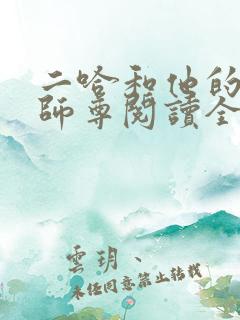 二哈和他的
師尊閱讀全
雲玥、
未经同意禁止转载